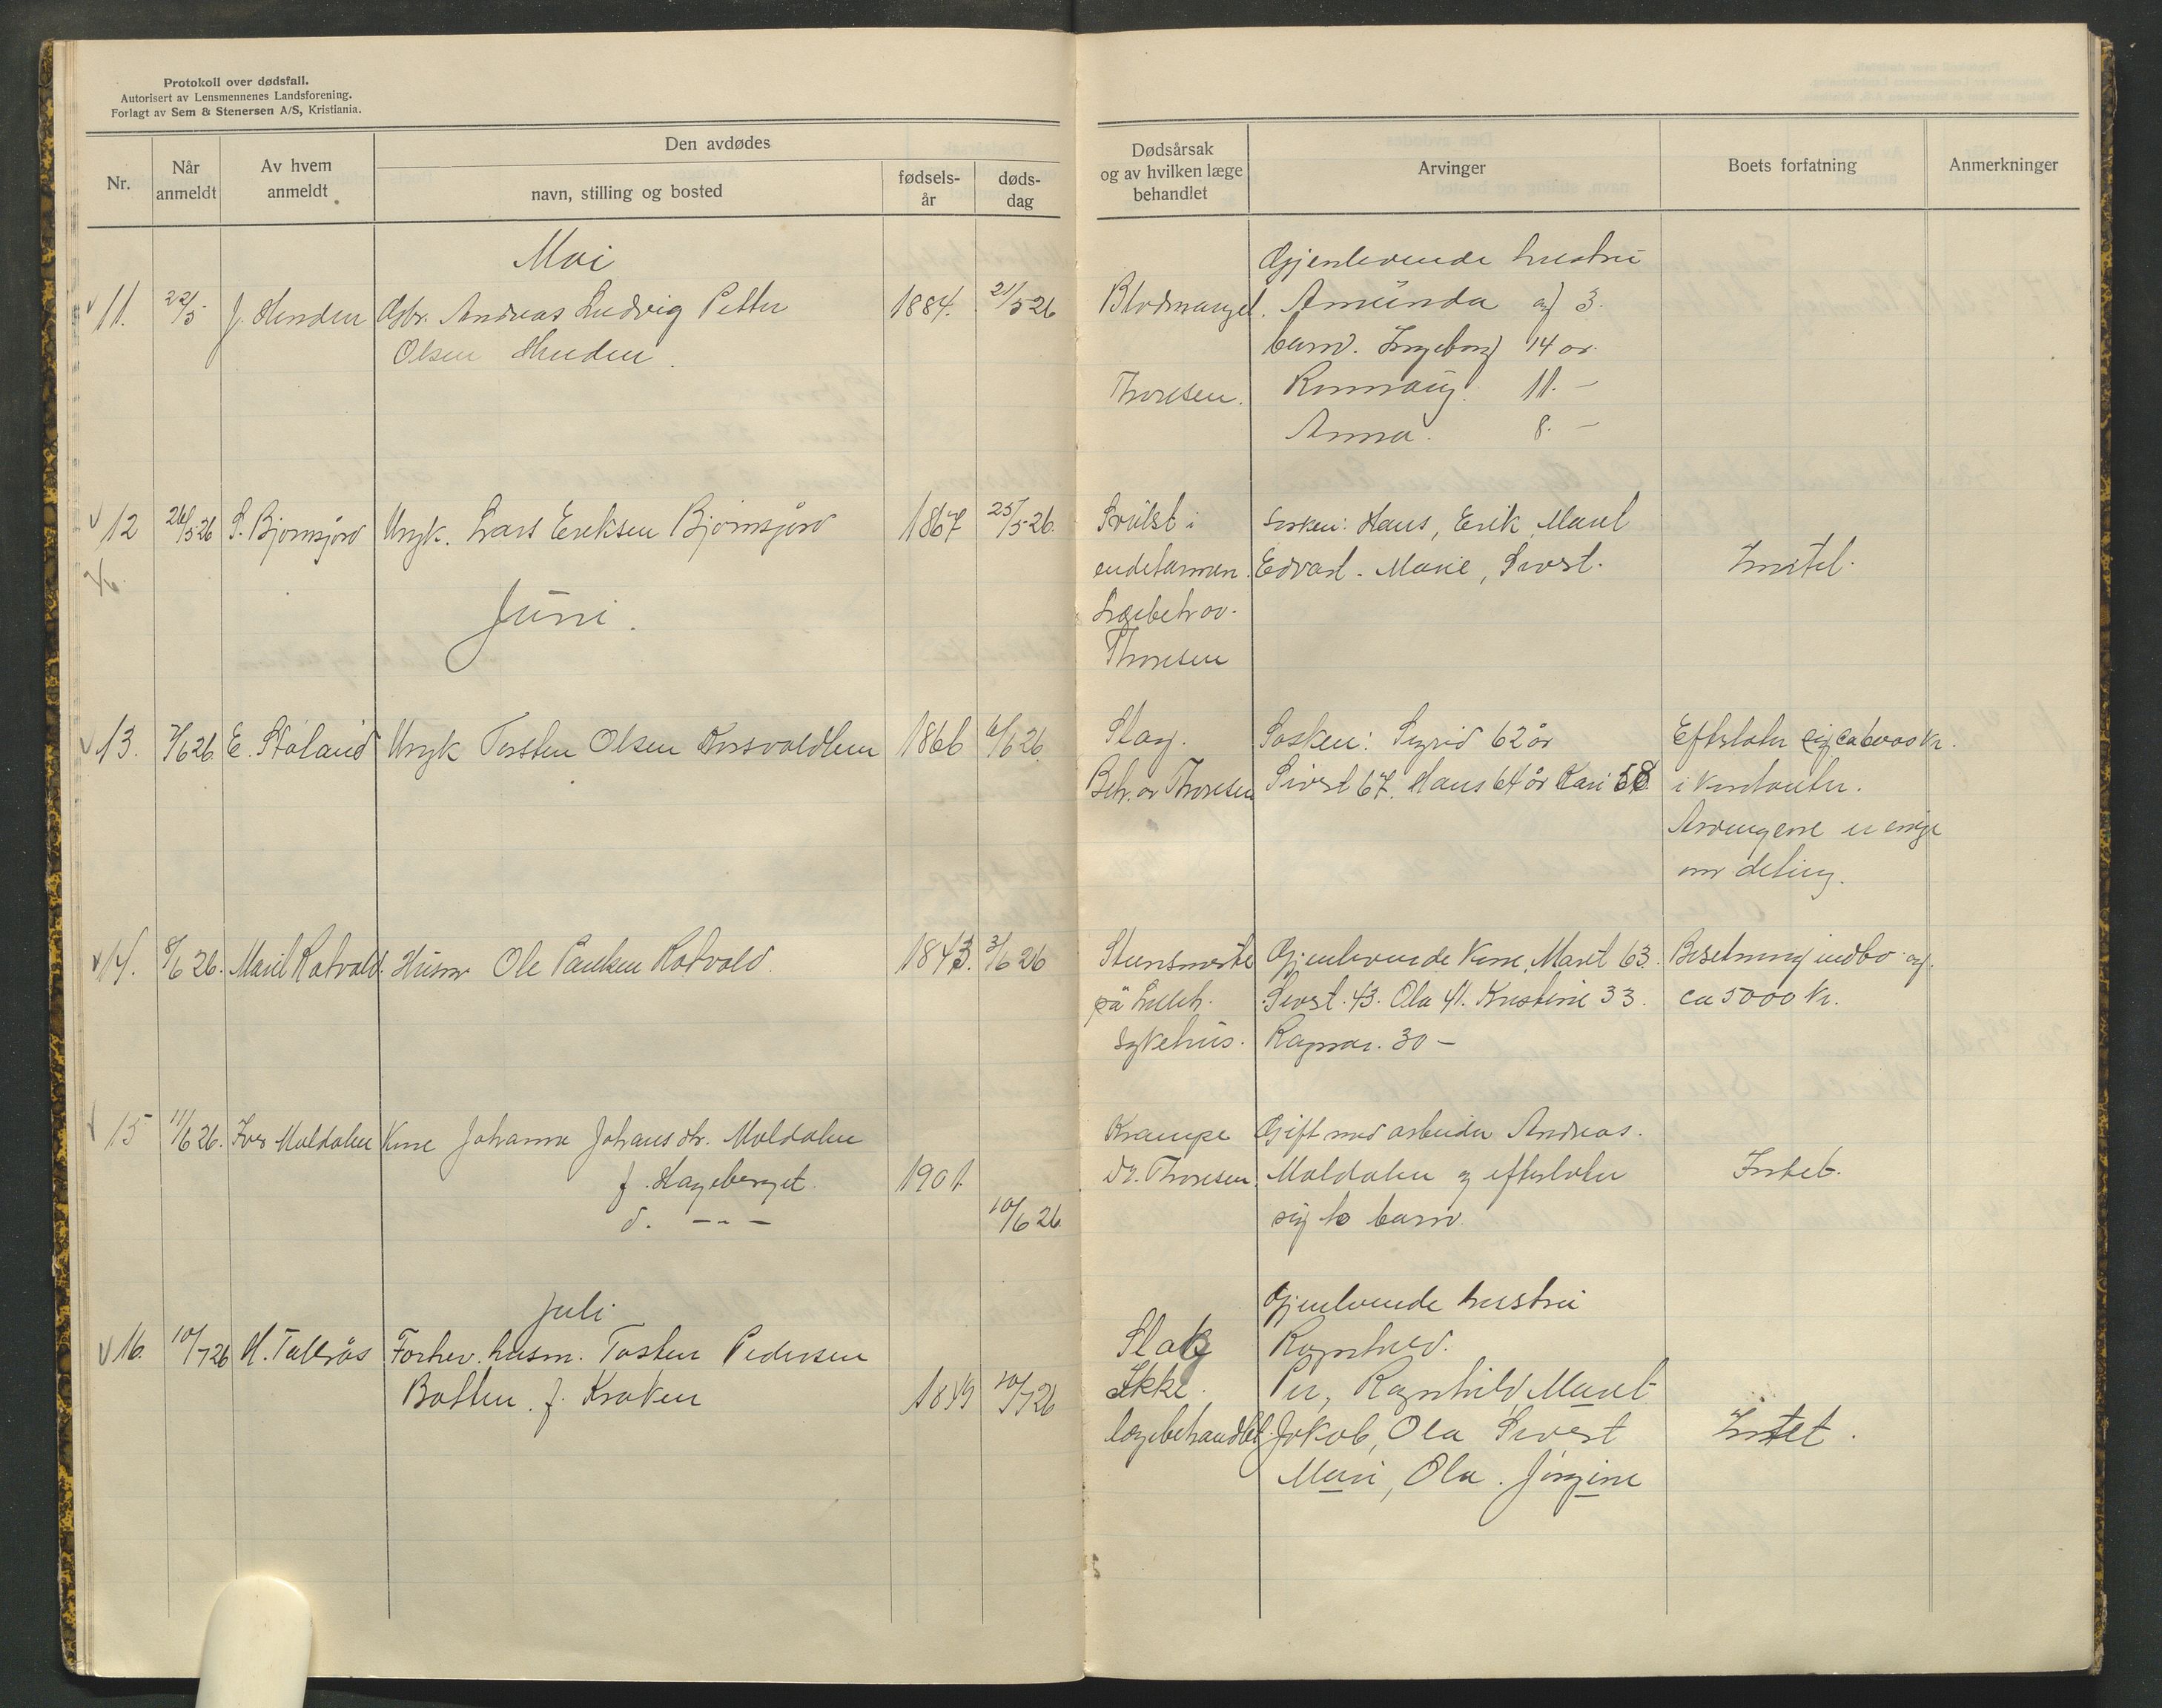 Protokoll over dødsfall.
Autorisert av Lensmennenes Landsforening.
Forlagt av Sem & Stenersen A/S, Kristiania.
Nr.
Når anmeldt
Av hvem anmeldt
Den avdødes
navn, stilling og bosted
fødsels-år
døds-dag
Dødsårsak og av hvilken læge behandlet
Arvinger
Boets forfatning
Anmerkninger
Mai
Gjenlevende hustru
11. 22/5 J. Hunden Gbr. Andreas Ludvig Petter 1884. 21/5 26 Blodmangel. Amunda og 3.
Olsen Hunden. barn. Ingeborg 14 år.
Thoresen. Rannaug 11. —
Anna. 8. —
12 26/5 26 S. Bjørnsjord Ungk. Lars Eriksen Bjørnsjord 1867 25/5 26. Svulst i søsken: Hans, Erik, Marit
endetarmen. Edvart. Marie, Sivert. Intet.
Juni. Lægebeh. av.
Thoresen
13. 7/6 26. E. Staland Ungk Torsten Olsen Korsvoldlien 1866 6/6 26. Slag. Søsken: Sigrid 62 år Efterlater sig ca 6000 kr.
Beh. av Thoresen Sivert 67. Hans 64 år Kari 58 i kontanter.
Arvingene er enige
om deling.
14. 8/6 26. Marit Rotvold. Husm Ole Paulsen Rotvold. 1843. 3/6 26 Gjenlevende kone, Marit 63. Besetning indbo og
på Lilleh. Sivert. 43. Ola 41. Kristine 33. ca 5000 kr.
sykehus. Ragnar. 30 —
15 11/6 26. Iver Moldalen Kone Johanna Johansdtr. Moldalen Krampe Gift med arbeider Andreas.
f. Hageberget 1901. Dr. Thoresen. Moldalen og efterlater Intet.
d. — - — 10/6 26. sig to barn.
Juli Gjenlevende hustru
16. 10/7 26 H. Tallrås Forhev. husm. Tosten Pedersen Slag Ragnhild.
Botten. f. Kroken 1849 10/7 26 Ikke. Per, Ragnhild, Marit
lægebehandlet. Jakob, Ola Sivert Intet.
Mari, Ola. Jørgine